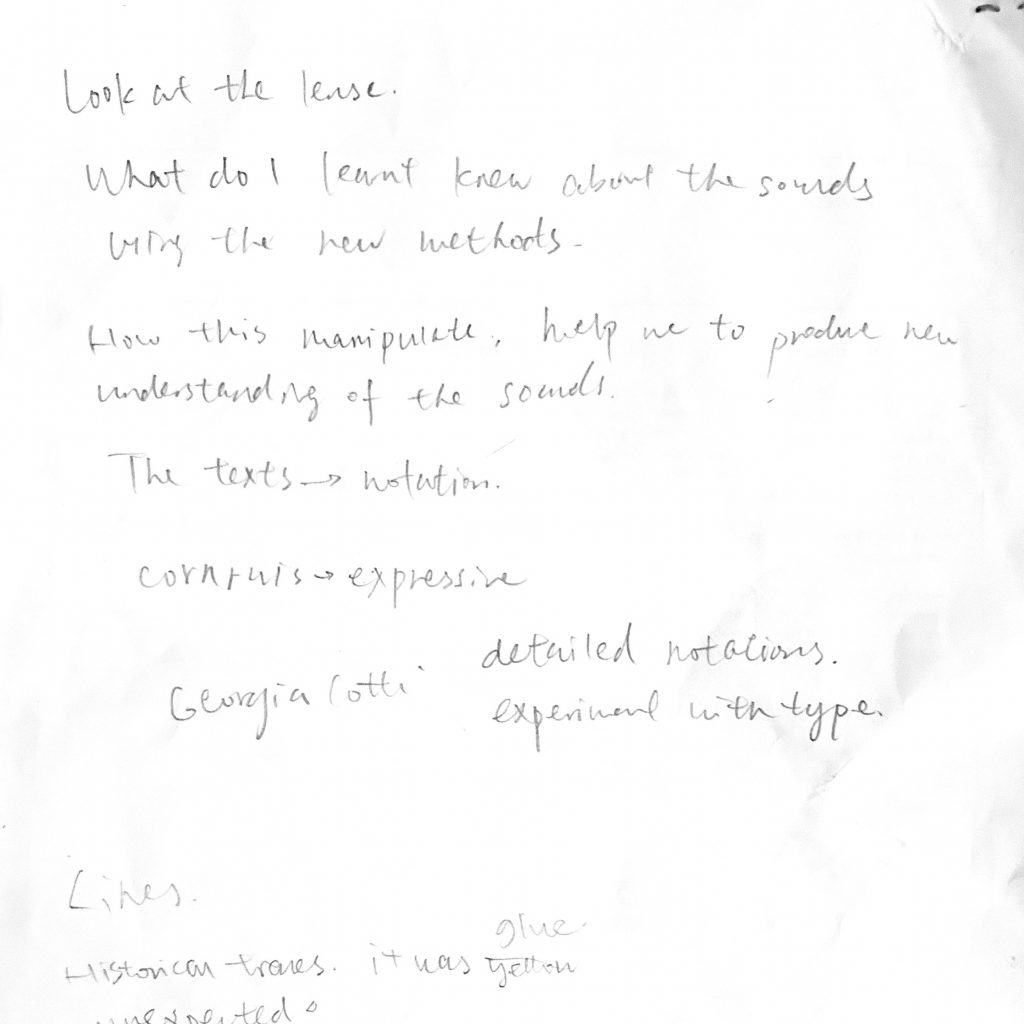 Look at the lense.
What do I learnt knew about the sounds
using the new methods.
How this manipulate, help me to produce new
understanding of the sounds.
The texts → notation.
→ expressive
detailed notations.
Georgia
experiment with type.
Lines.
glue
Historical traces. it was
unexpected